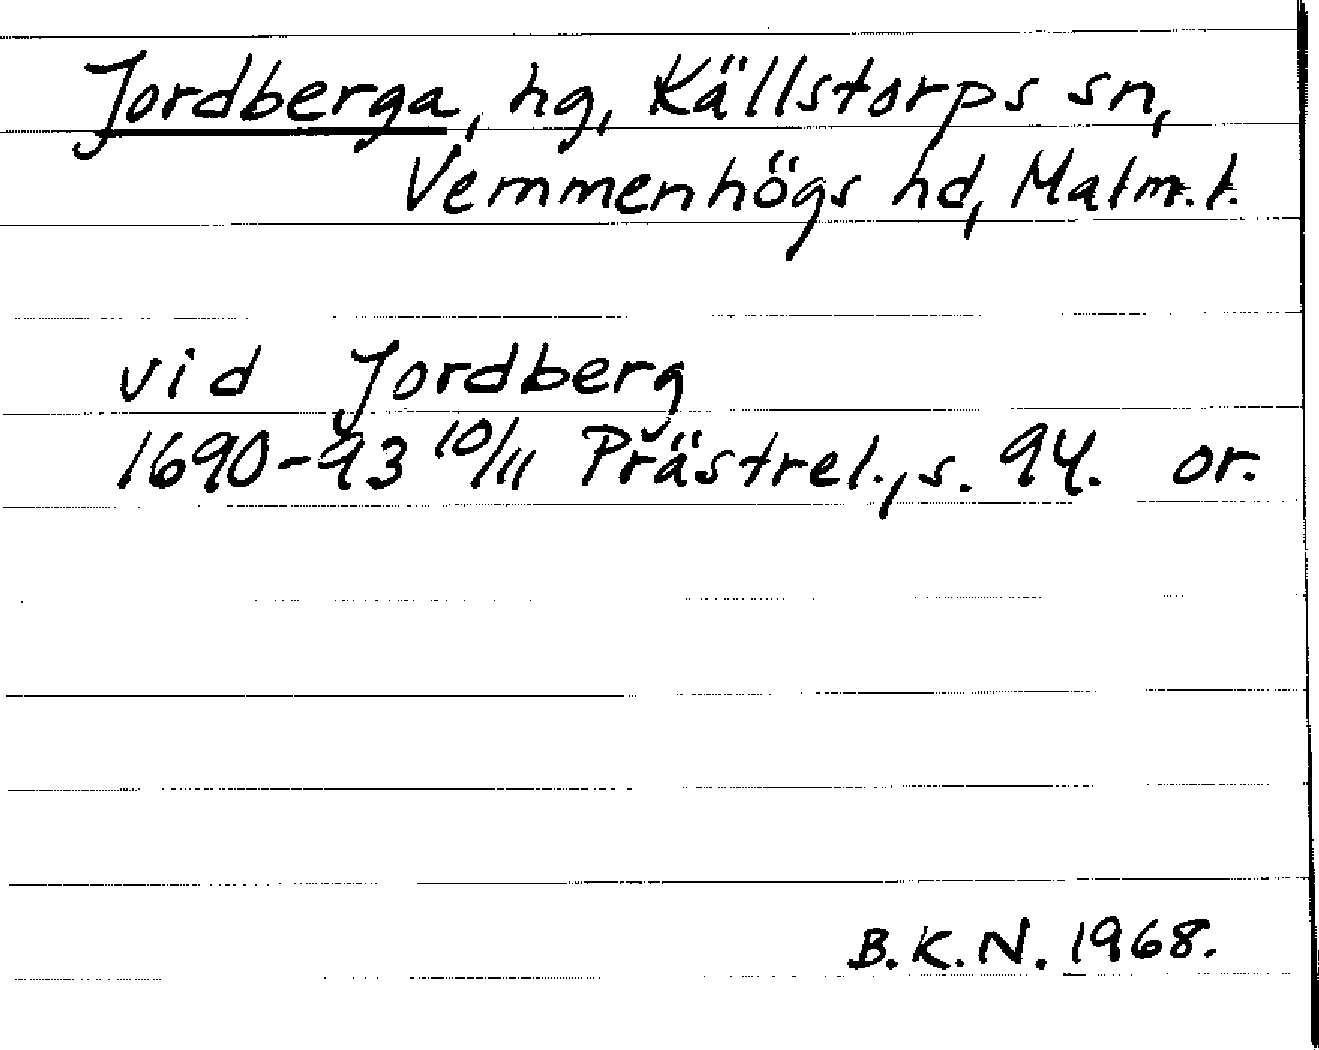 Jordberga, hg, Källstorps sn,
Vemmenhögs hd, Malm. l.
vid Jordberg
1690-93 10/11 Prästrel., s. 94. or.
B.K.N. 1968.